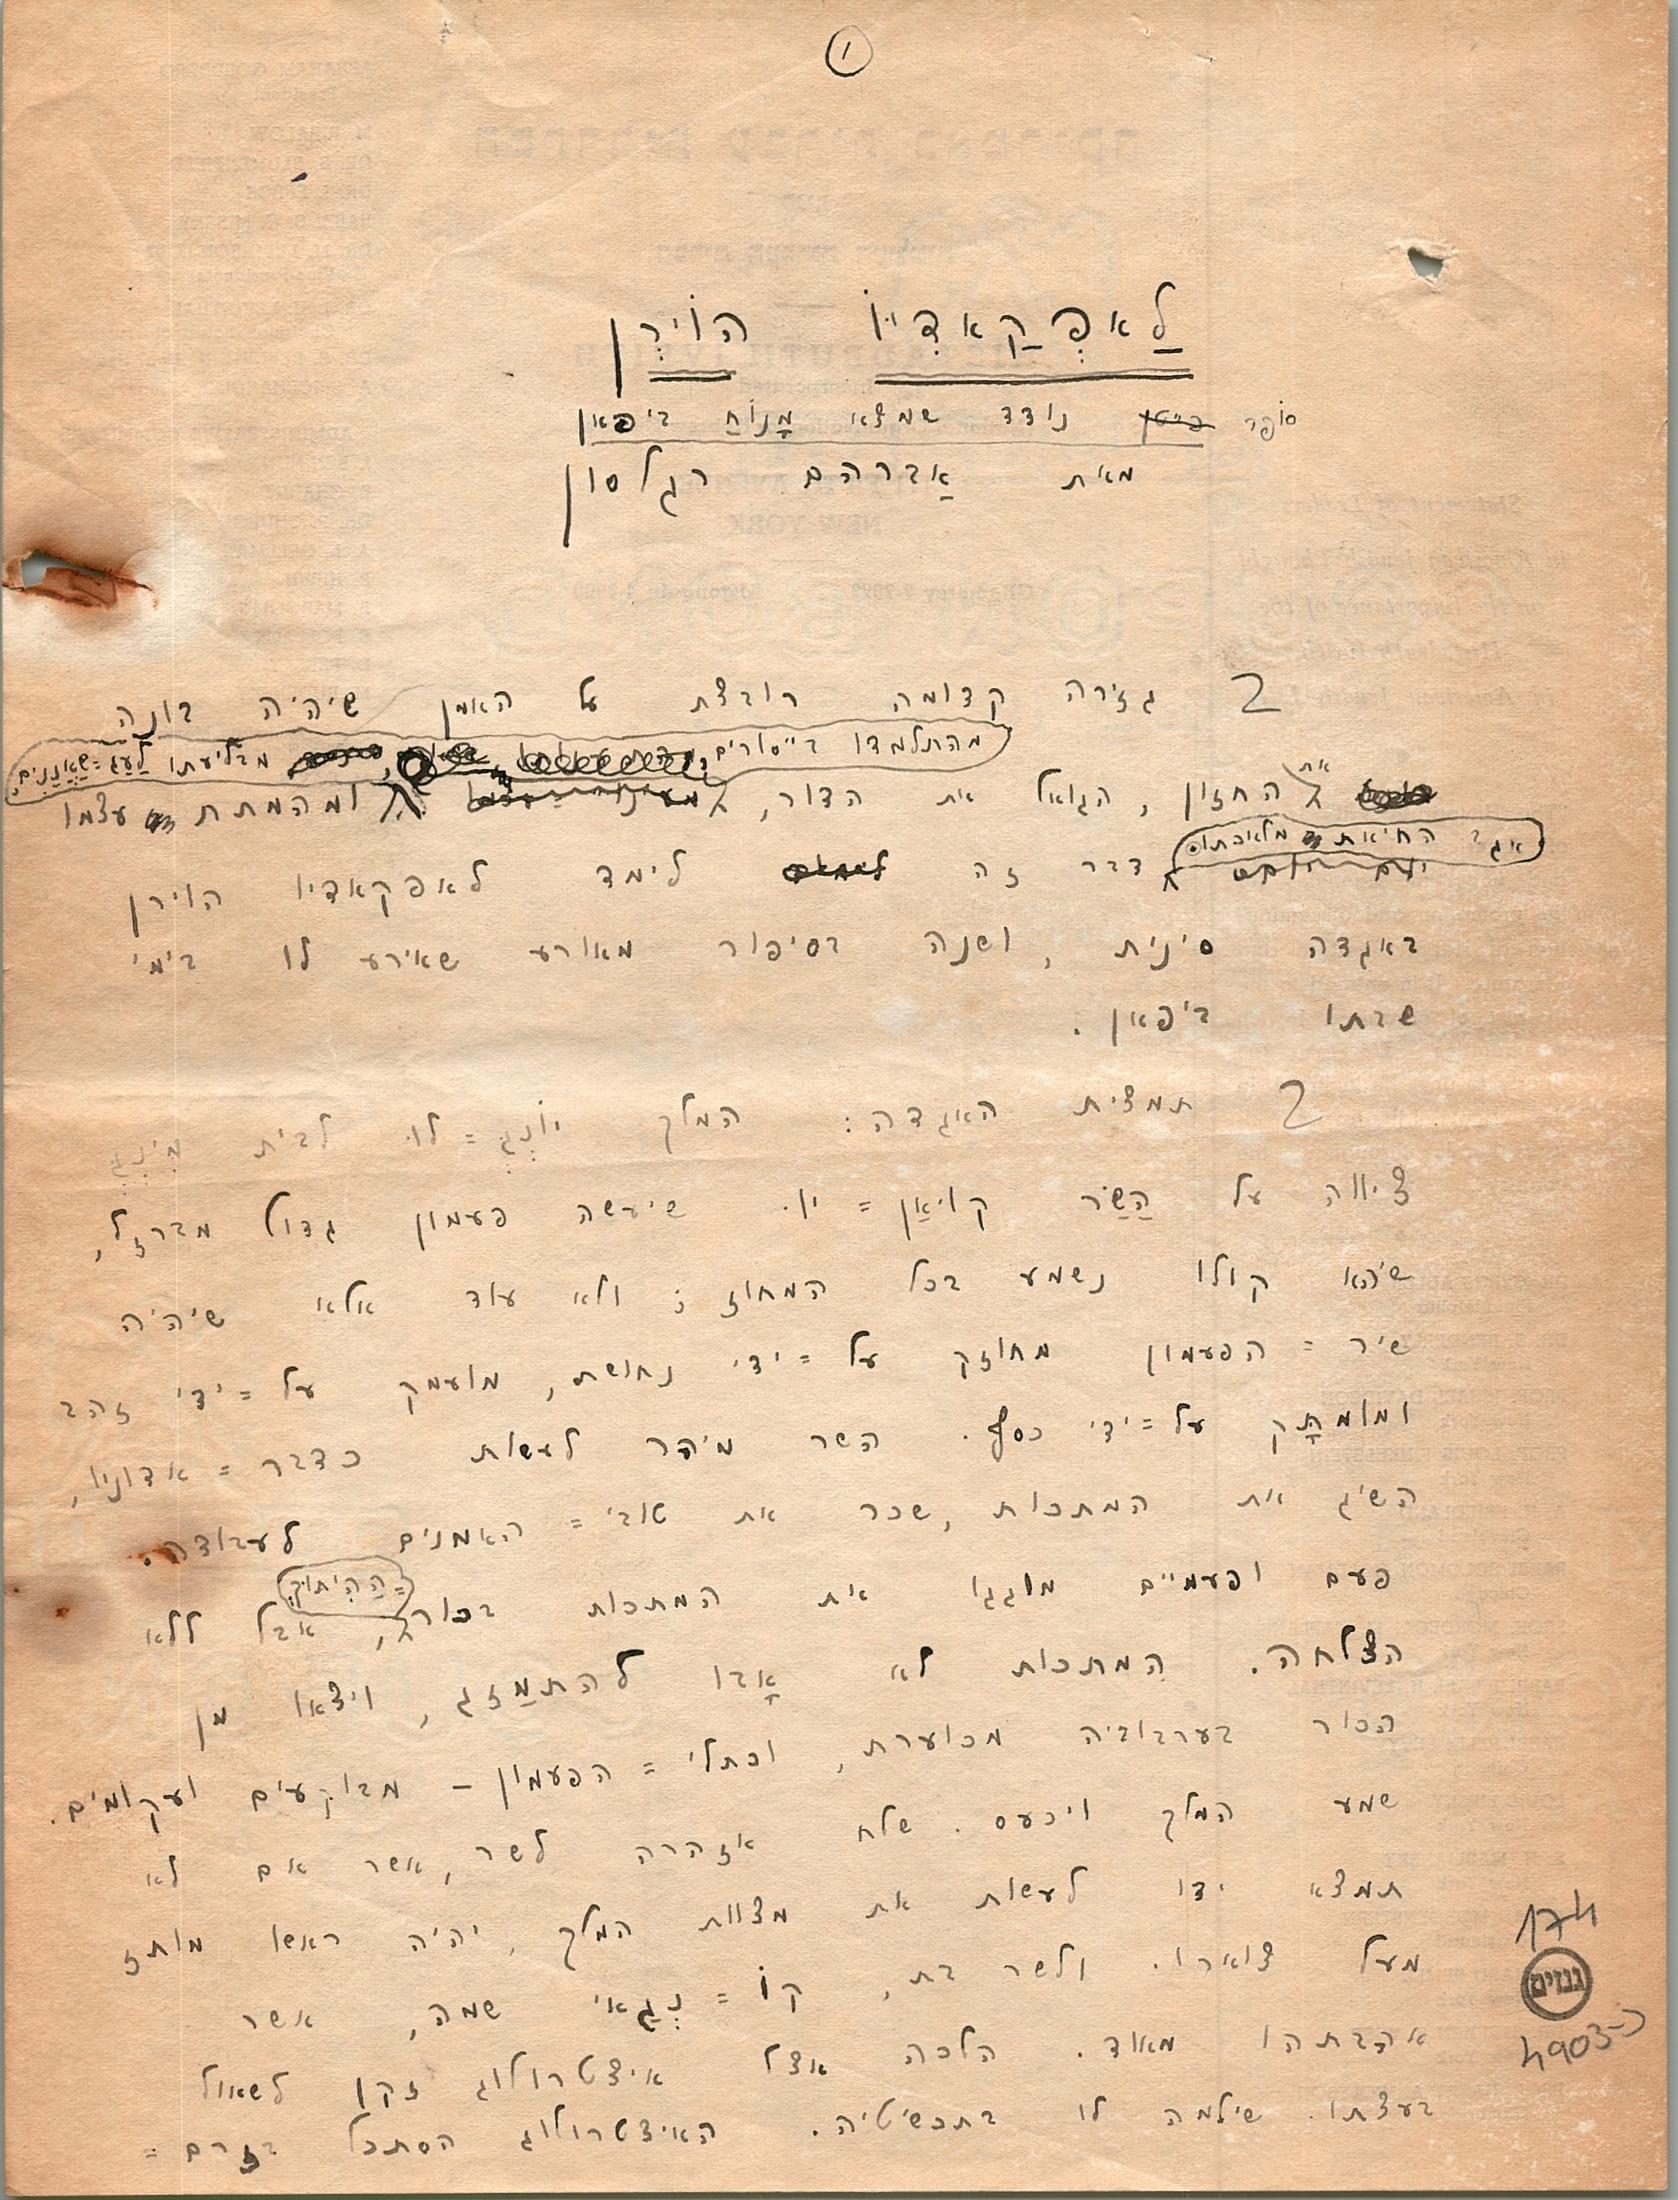 1
לַאפְקַאדִיוֹ הוֹירְן
סופר פייטן נודד שמצא מָנוֹחַ ביפאן
מאת אַברהם רגלסון
גזירה קדומה רובצת על האמן שיהיה בונה
מהתלמדו בייסורים, מבליעתו לַעַג=שַׁאֲנַנִּים,
את החזון, הגואל את הדור, ומהמתת עצמו
אגב החיאת מלאכתו.
דבר זה לימד לאפקאדיו הוירן
באגדה סינית, ושנה בסיפור מאורע שאירע לו בימי
שבתו ביפאן.
תמצית האגדה: המלך יוֹנְגְ=לוֹ לבית מִינְגְ
ציווה על הַשַּׂר קוּיאַן=יו. שיעשה פעמון גדול מברזל,
שיהא קולו נשמע בכל המחוז; ולא עוד אלא שיהיה
שיר=הפעמון מחוזק על=ידי נחושת, מועמק על=ידי זהב
ומומתָּק על=ידי כסף. השר מיהר לעשות כדבר=אדוניו,
השיג את המתכות, שכר את טובי=האמנים לעבודה.
פעם ופעמיים מוגגו את המתכות בכור
=הַהִיתּוּךְ, אבל ללא
הצלחה. המתכות לא אָבו להתמַזג, ויצאו מן
הכור בערבוביה מכוערת, וכתלי=הפעמון – מבוקעים ועקומים.
שמע המלך ויכעס. שלח אזהרה לשר, אשר אם לא
תמצא ידו לעשות את מצוות המלך, יהיה ראשו מותז
מעל צוארו. ולשר בת, קוֹ=נְגַאי שמה, אשר
אהבתהו מאוד. הלכה אצל איצטרולוג זקן לשאול
בעצתו. שילמה לו בתכשיטיה. האיצטרולוג הסתכל בזרם=
174
גנזים
4903-כ